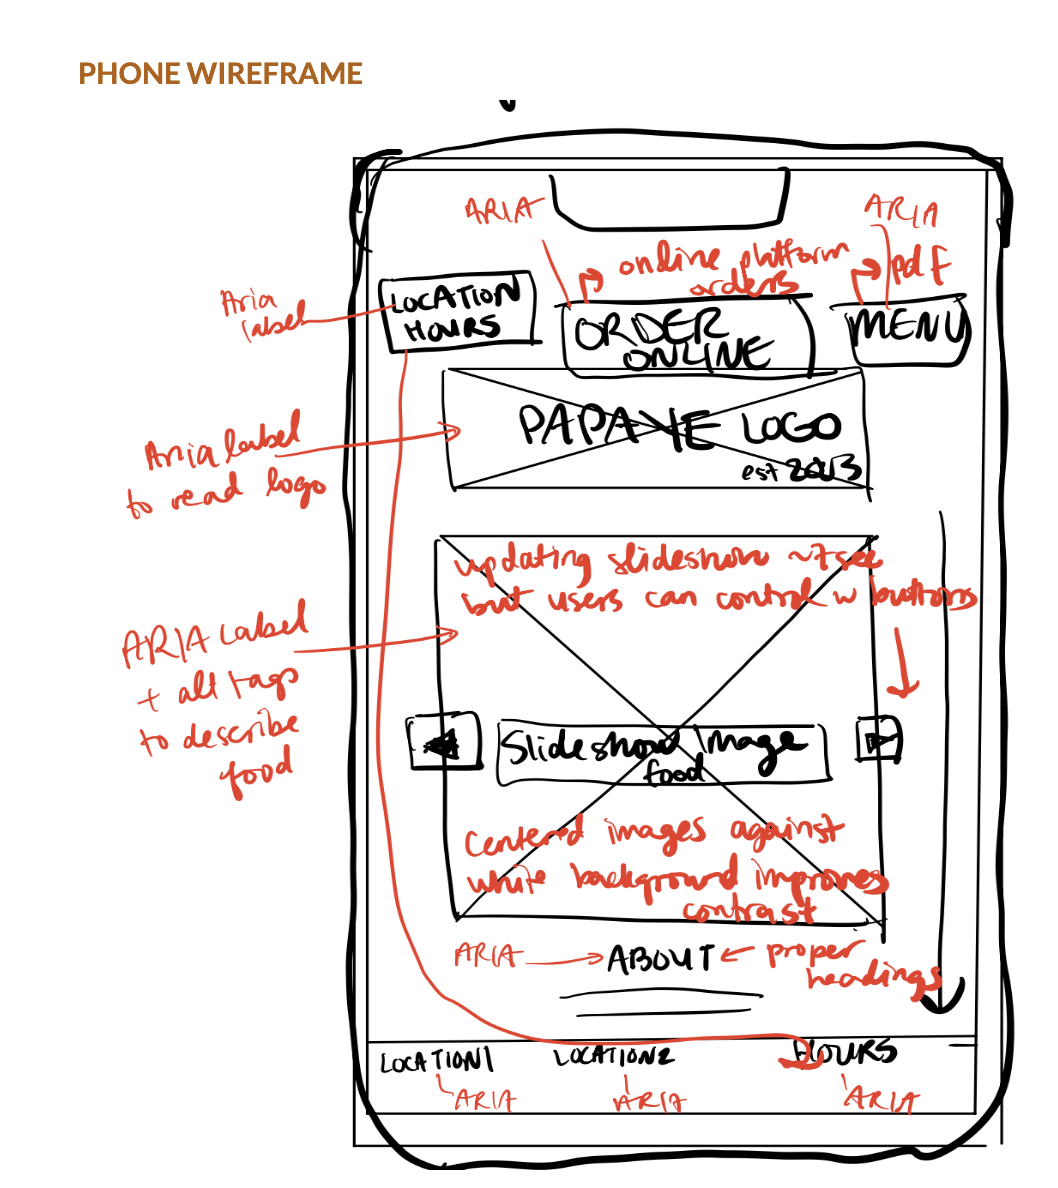 PHONE WIREFRAME
ARIA
ARIA
online platform
orders
pdf
Aria
label
LOCATION
HOURS
ORDER
ONLINE
MENU
PAPAYE LOGO
est 2013
Aria label
to read logo
updating slideshow ~7sec
but users can control w buttons
ARIA Label
+ alt tags
to describe
food
Slideshow image
food
Centered images against
white background improves
contrast
ARIA
ABOUT
proper
headings
LOCATION1
LOCATION2
HOURS
ARIA
ARIA
ARIA